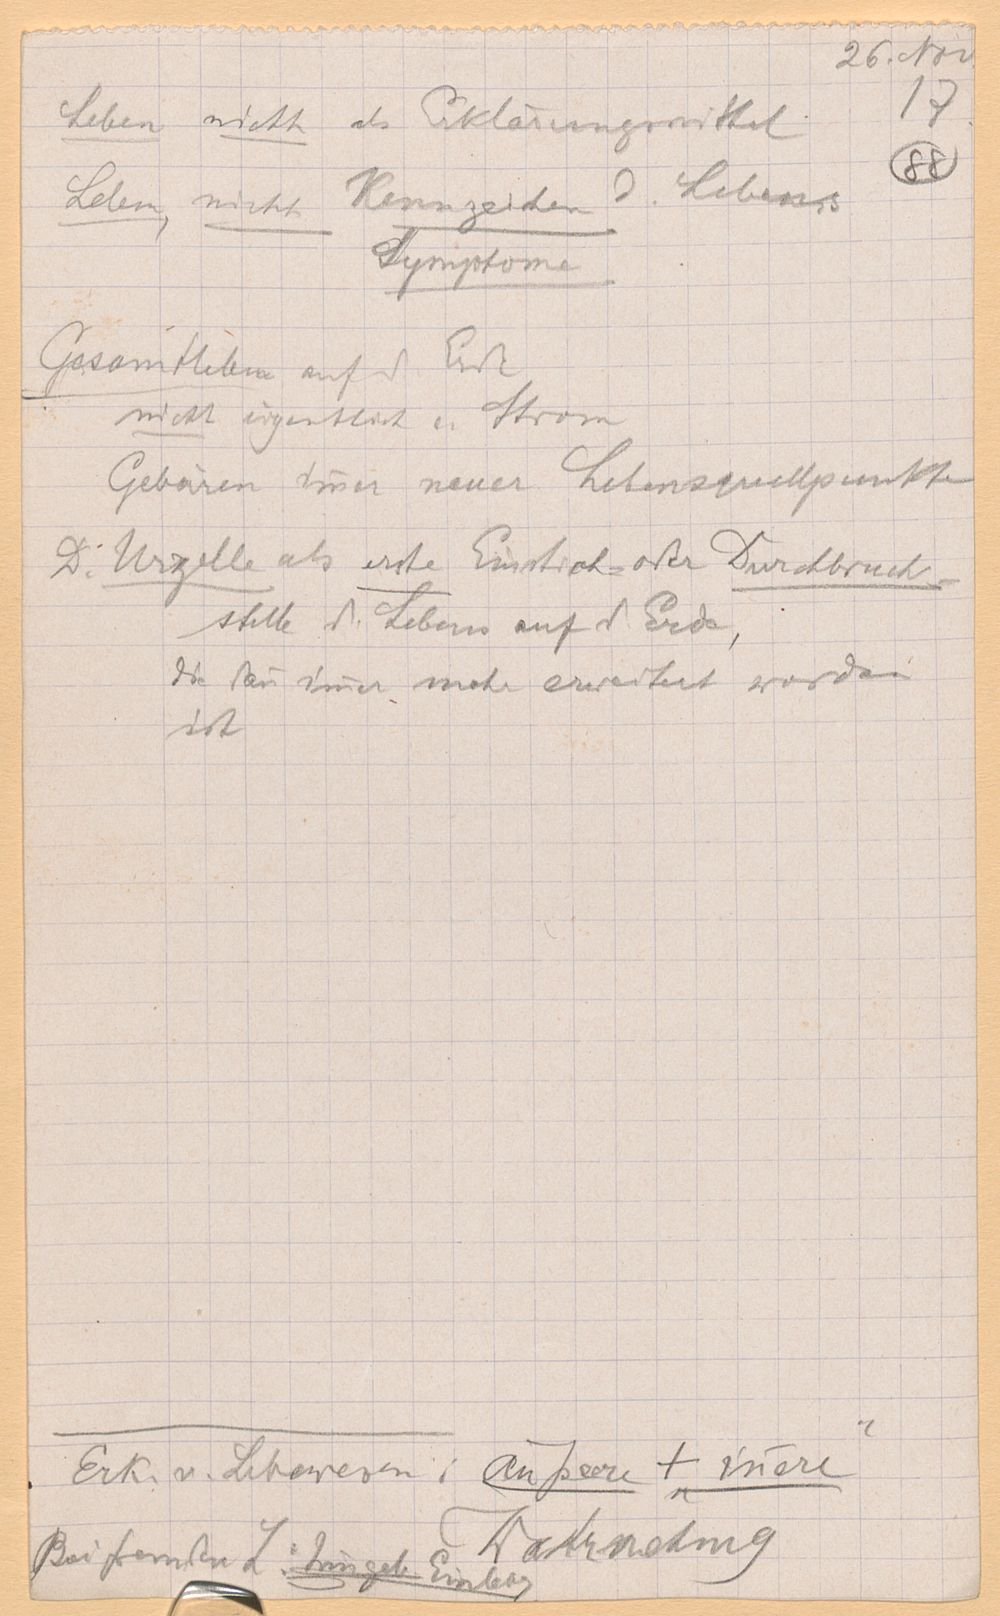 26. Nov
17
88
Leben nicht als Erklärungsmittel
Leben, nicht Kennzeichen d. Lebens
Symptome
Gesamtleben auf d Erde
nicht eigentlich e. Strom
Gebären im̄er neuer Lebensquellpunkte
D. Urzelle als erste Einbruch= oder Durchbruch-
stelle d. Lebens auf d Erde,
die dan̄ im̄er mehr erweitert worden
ist
Erk. v. Lebewesen: äußere + in̄ere
Wahrnehmg
Bei fremden L.